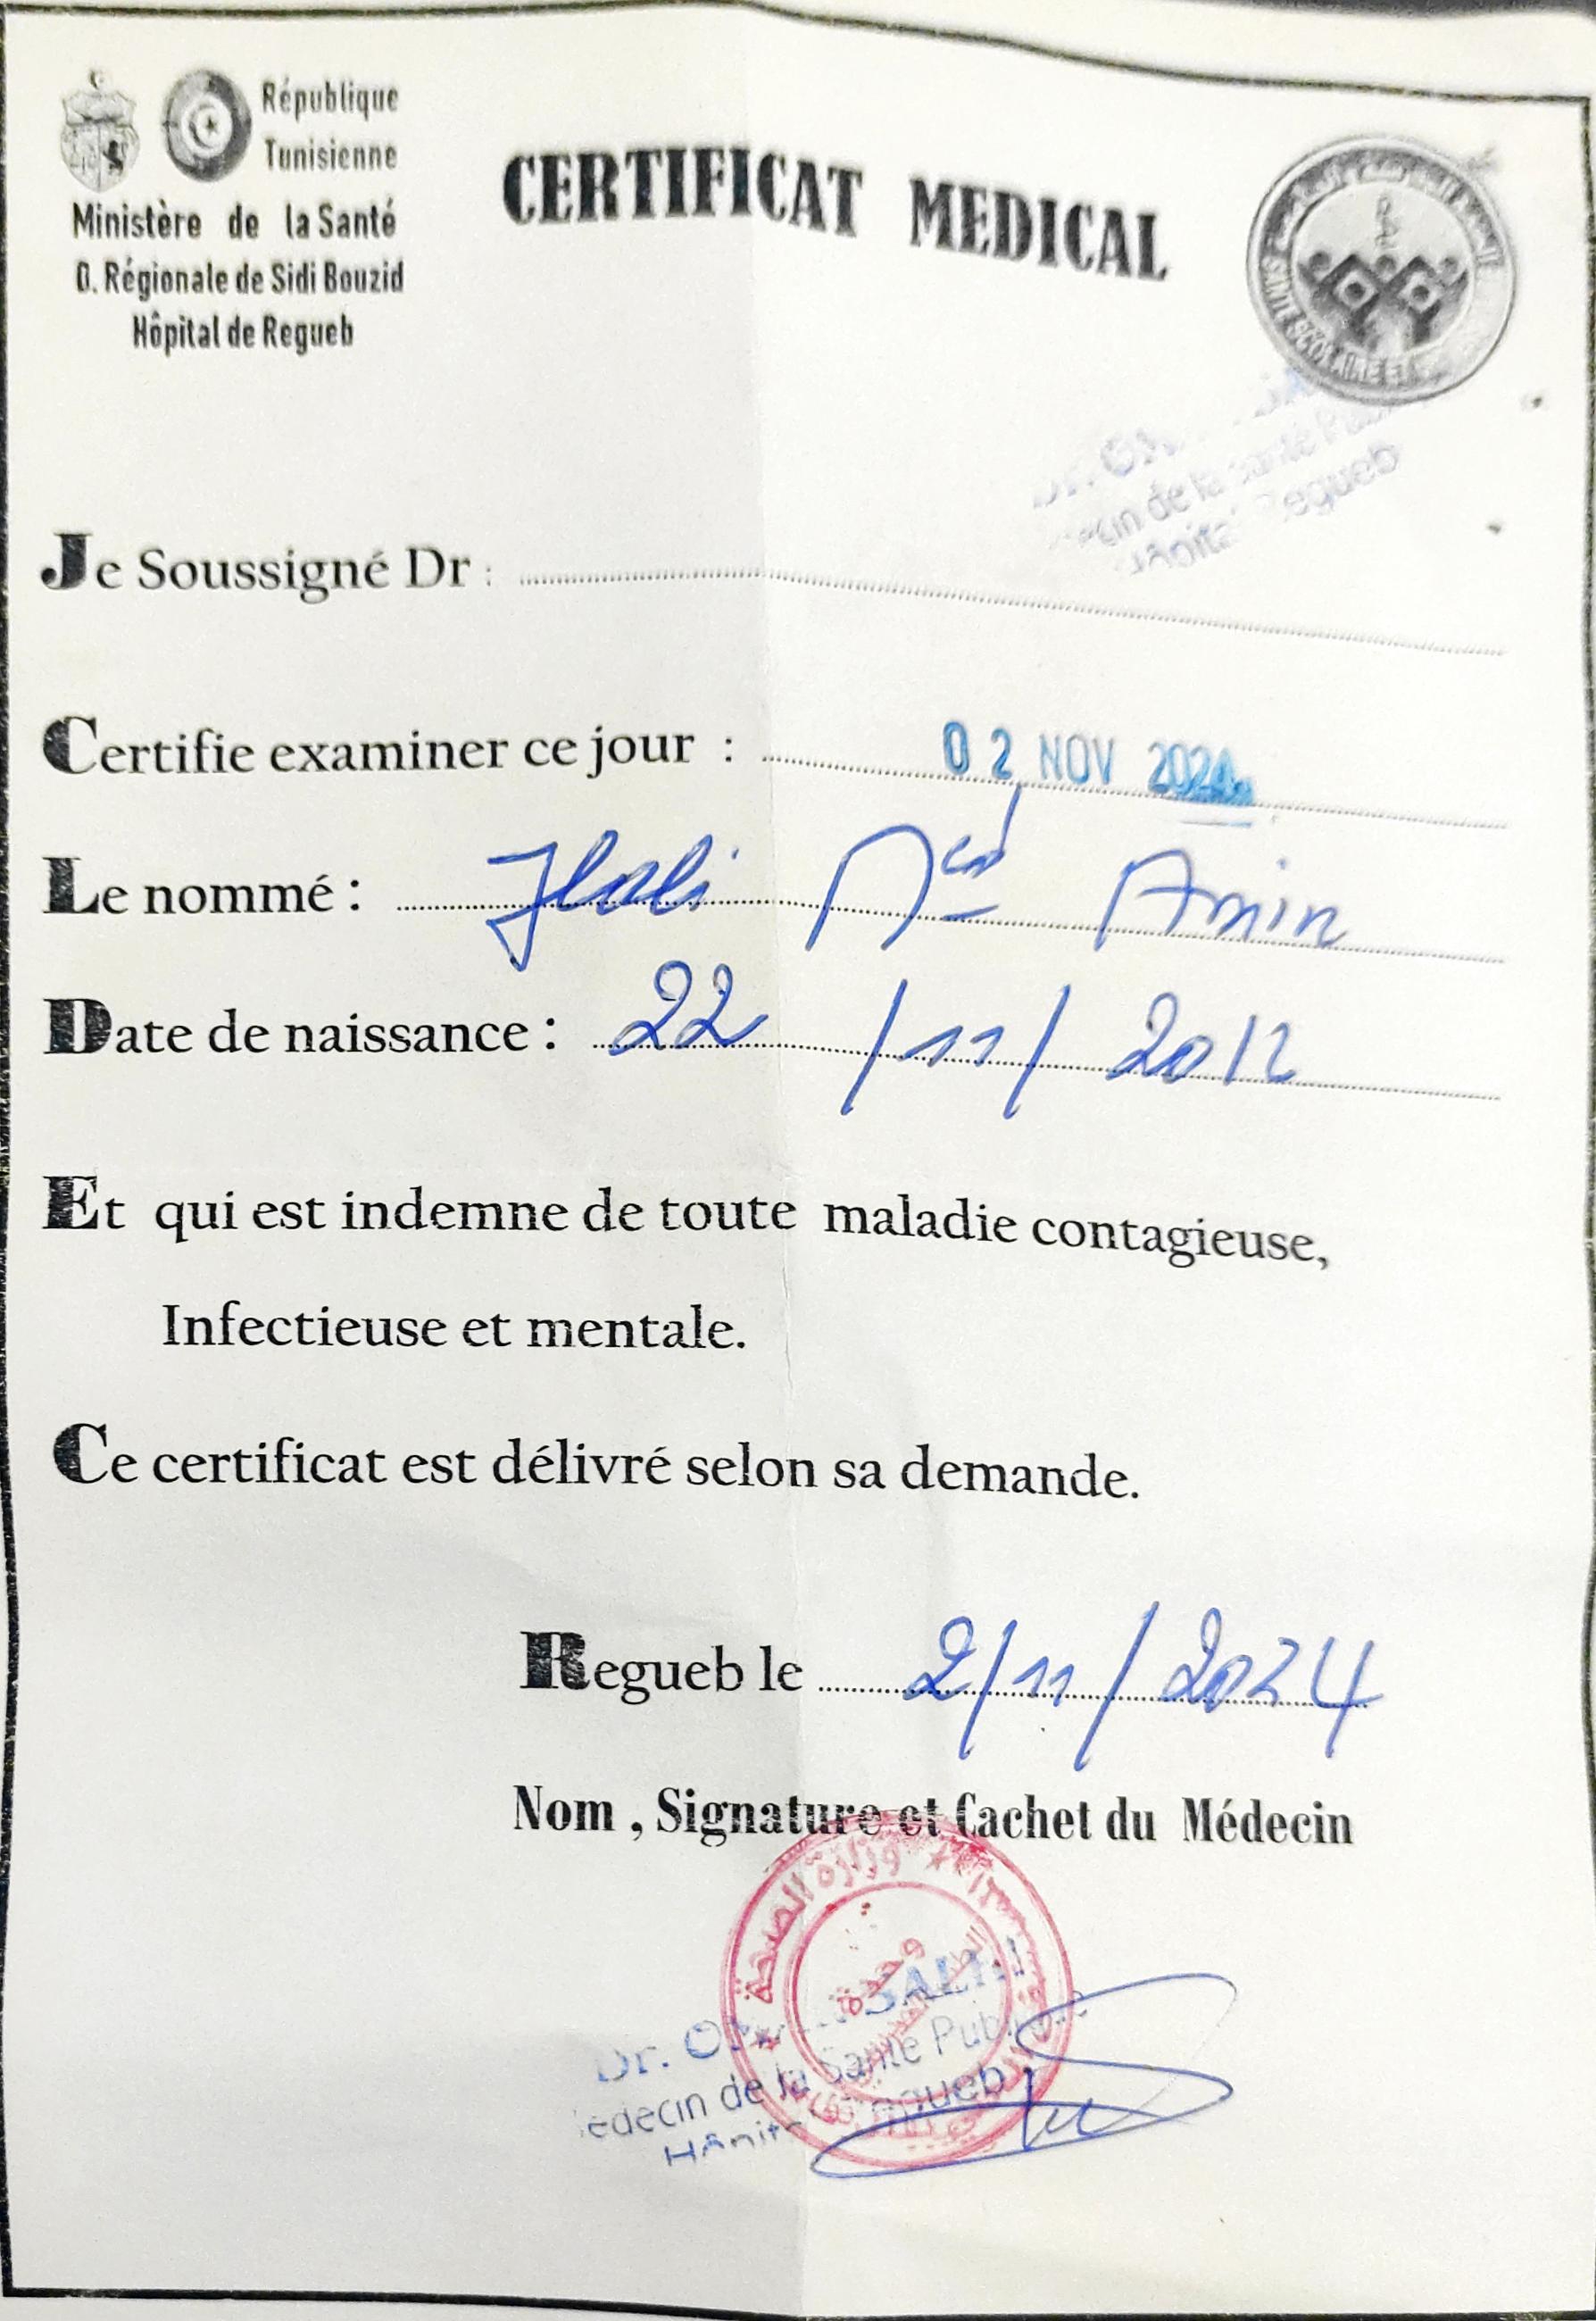 République
Tunisienne
Ministère de la Santé
D. Régionale de Sidi Bouzid
Hôpital de Regueb
CERTIFICAT MEDICAL
SANTE SCOLAIRE ET
Dr.
de la Santé
Regueb
Je Soussigné Dr :
Certifie examiner ce jour : 02 NOV 2024
Le nommé : Jlali Med Amin
Date de naissance : 22/11/2012
Et qui est indemne de toute maladie contagieuse,
Infectieuse et mentale.
Ce certificat est délivré selon sa demande.
Regueb le 2/11/2024
Nom , Signature et Cachet du Médecin
وزارة الصحة
وحدة
Dr. SALHI
de la Santé
Regueb